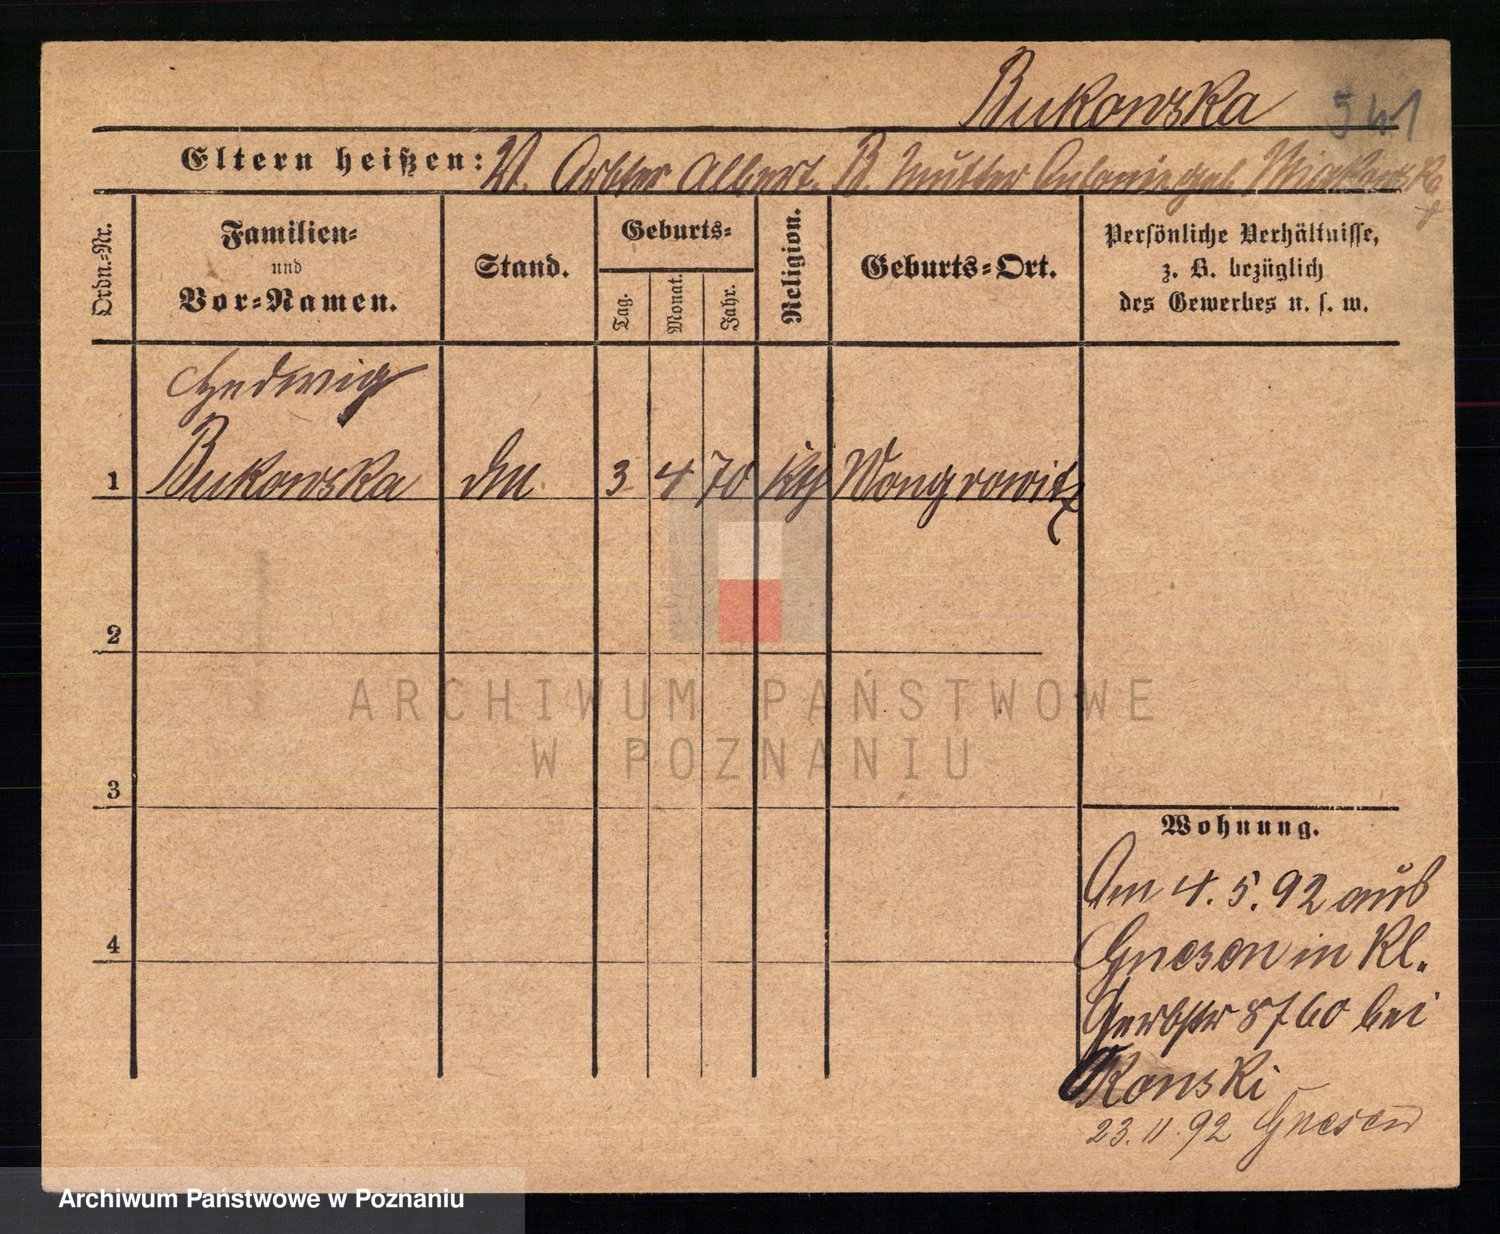 Bukowska 541
Eltern heißen: V. Arbter Albert. B. Mutter geb.
Ordn.-Nr.
Familien-
und
Vor-Namen.
Stand.
Geburts-
Tag.
Monat.
Jahr.
Religion.
Geburts-Ort.
Persönliche Verhältnisse,
z. B. bezüglich
des Gewerbes u. s. w.
Hedwig
1 Bukowska 3 4 70 kth Wongrowitz
2
ARCHIWUM PAŃSTWOWE
W POZNANIU
3
Wohnung.
Am 4. 5. 92 aus
4
Gnesen in Kl.
Gerbstr 8/60 bei
Konski
23. 11. 92 Gnesen
Archiwum Państwowe w Poznaniu